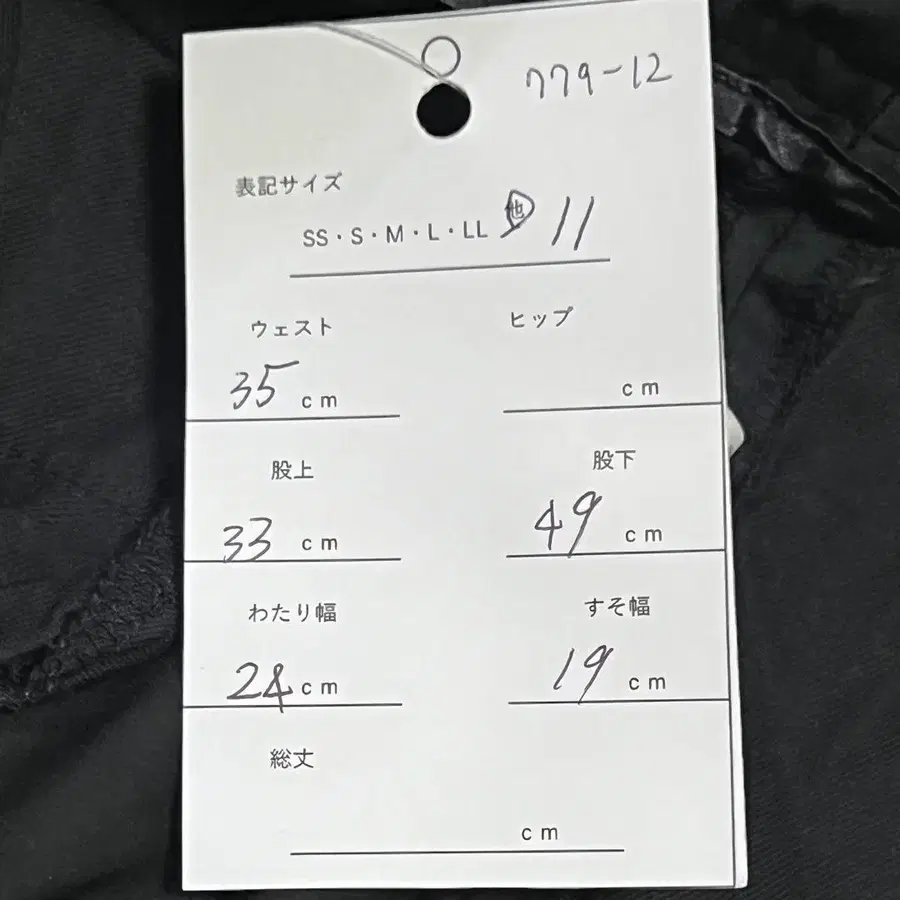 779-12
表記サイズ
SS・S・M・L・LL 他 11
ウェスト ヒップ
35 cm cm
股上 股下
33 cm 49 cm
わたり幅 すそ幅
24 cm 19 cm
総丈
cm